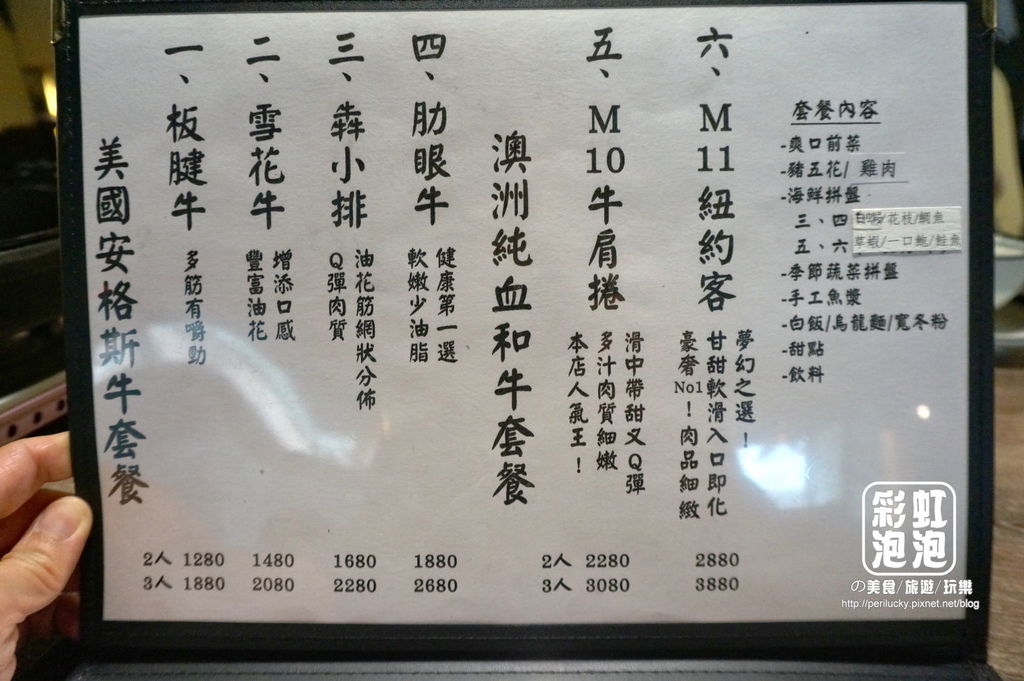 美國安格斯牛套餐
一、板腱牛
多筋有嚼勁
二、雪花牛
增添口感
豐富油花
三、犇小排
油花筋網狀分佈
Q彈肉質
四、肋眼牛
健康第一選
軟嫩少油脂
2人 1280 1480 1680 1880
3人 1880 2080 2280 2680
澳洲純血和牛套餐
五、M10牛肩捲
滑中帶甜又Q彈
多汁肉質細嫩
本店人氣王！
六、M11紐約客
夢幻之選！
甘甜軟滑入口即化
豪奢No1！肉品細緻
2人 2280 2880
3人 3080 3880
套餐內容
-爽口前菜
-豬五花/ 雞肉
-海鮮拼盤
三、四 白蝦/花枝/鯛魚
五、六 草蝦/一口鮑/鮭魚
-季節蔬菜拼盤
-手工魚漿
-白飯/烏龍麵/寬冬粉
-甜點
-飲料
彩虹泡泡
の美食/旅遊/玩樂
http://perilucky.pixnet.net/blog